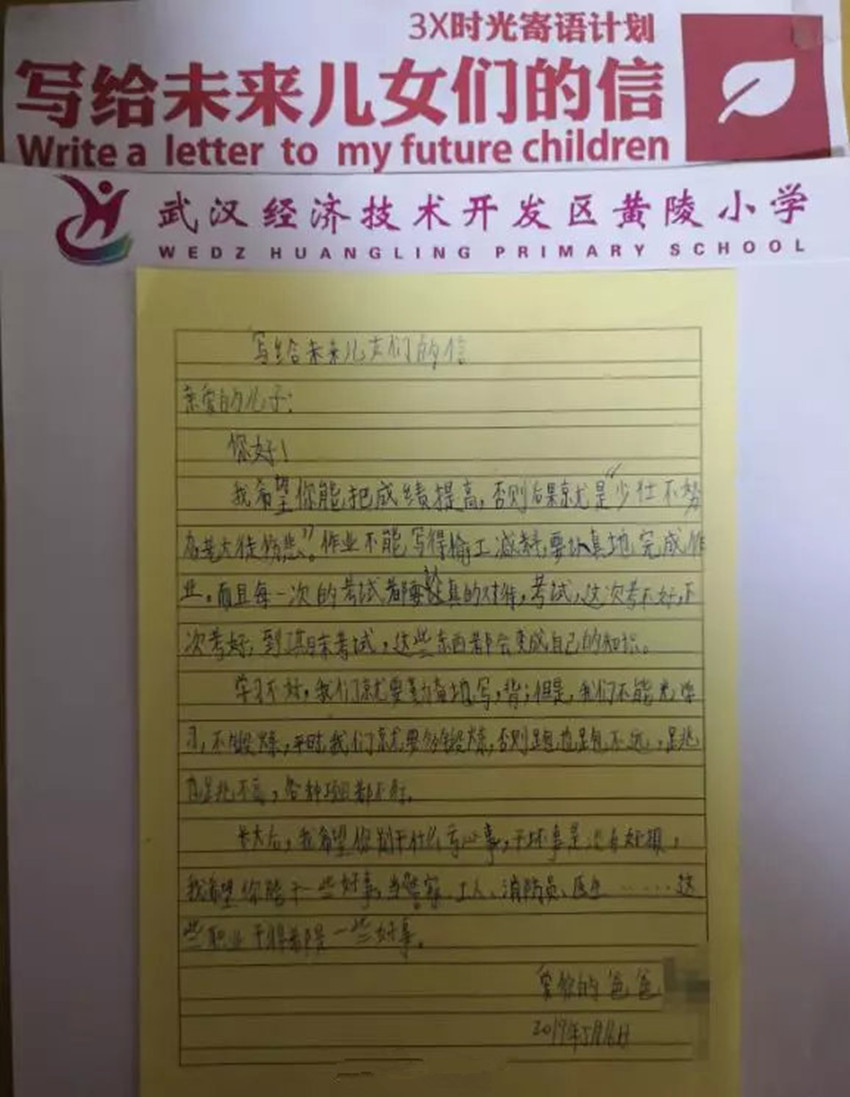 3X时光寄语计划
写给未来儿女们的信
Write a letter to my future children
武汉经济技术开发区黄陵小学
WEDZ HUANGLING PRIMARY SCHOOL
写给未来儿女们的信
亲爱的儿子:
你好!
我希望你能把成绩提高,否则后果就是“少壮不努
力老大徒伤悲”。作业不能写得偷工减料,要认真地完成作
业。而且每一次的考试都要认真的对待,考试,这次考不好,下
次考好,到期末考试,这些东西都会变成自己的知识。
学习不好,我们就要勤奋地写,背;但是,我们不能光学
习,不锻炼,平时我们就要多锻炼,否则跑也跑不远,跳
也跳不高,各种项目都不行。
长大后,我希望你别干什么亏心事,干坏事是没有好
我希望你能干一些好事,当警察、工人、消防员、医生……这
些职业干得都是一些好事。
爱你的爸爸
2019年5月 日